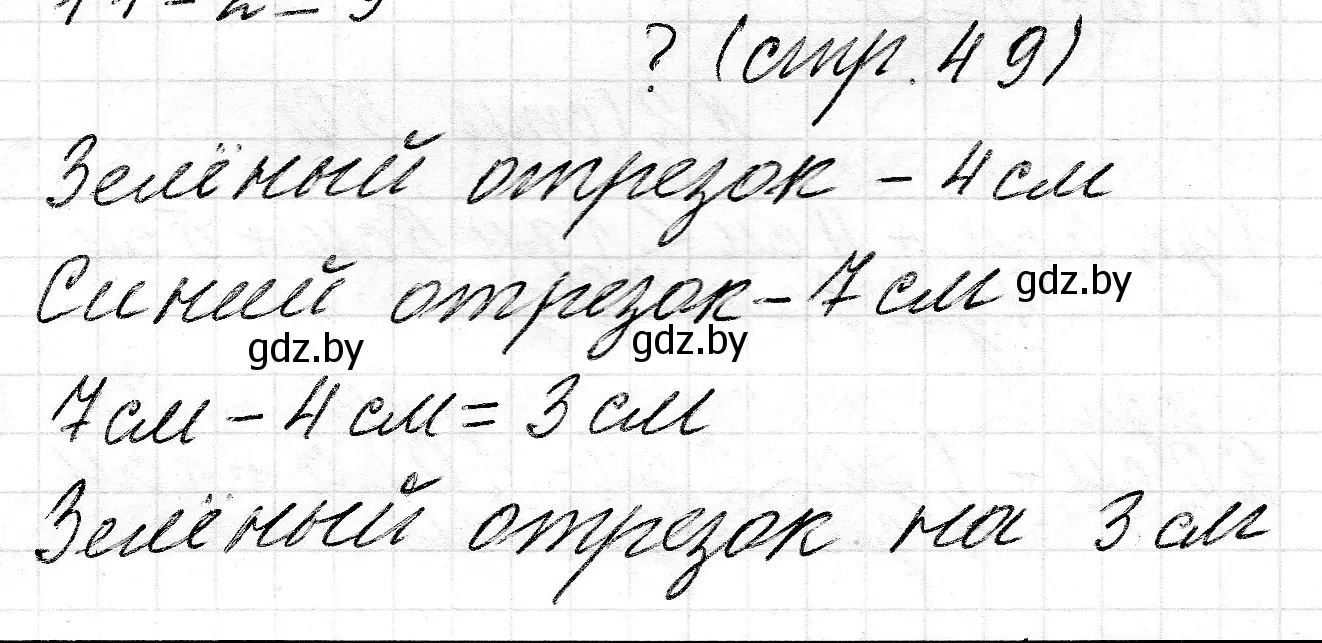 11-2=9
? (стр. 49)
Зелёный отрезок - 4 см
Синий отрезок - 7 см
gdz.by
gdz.by
gdz.by
7 см - 4 см = 3 см
Зелёный отрезок на 3 см